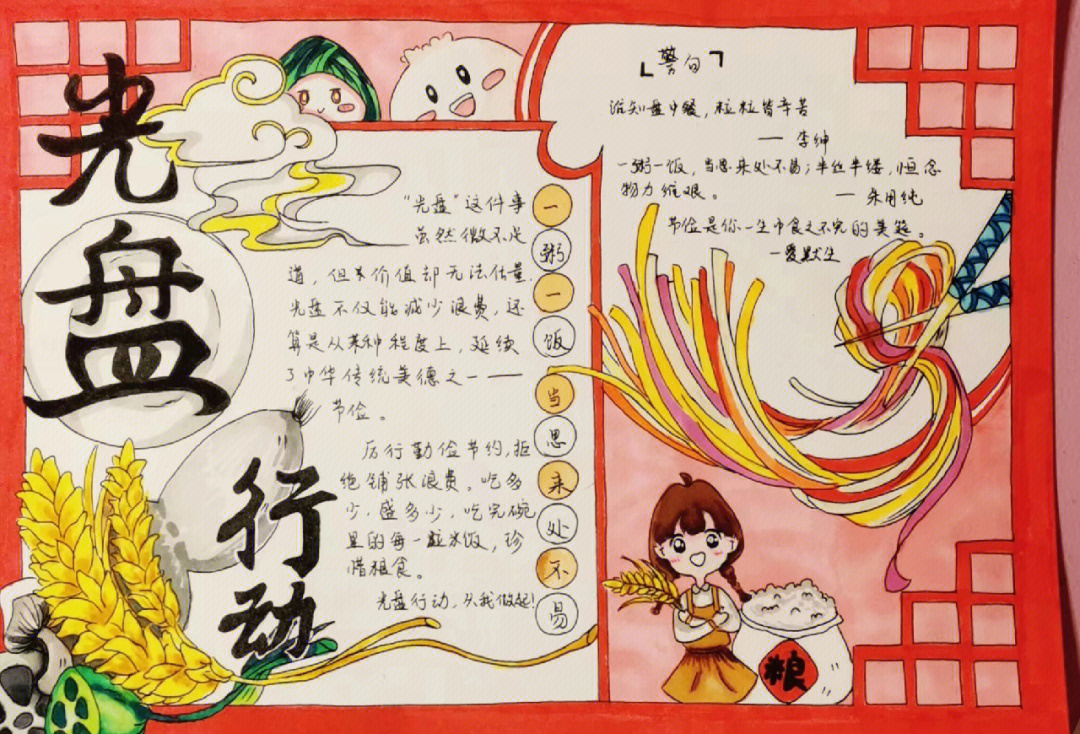 光盘
行动
"光盘"这件事
虽然微不足
道，但其价值却无法估量.
光盘不仅能减少浪费，还
算是从某种程度上，延续
了中华传统美德之一——
节俭。
厉行勤俭节约,拒
绝铺张浪费。吃多
少，盛多少，吃完碗
里的每一粒米饭，珍
惜粮食。
光盘行动，从我做起!
一
粥
一
饭
当
思
来
处
不
易
「警句」
谁知盘中餐，粒粒皆辛苦
— 李绅
一粥一饭，当思来处不易；半丝半缕，恒念
物力维艰。 — 朱用纯
节俭是你一生中食之不完的美筵。
—爱默生
粮